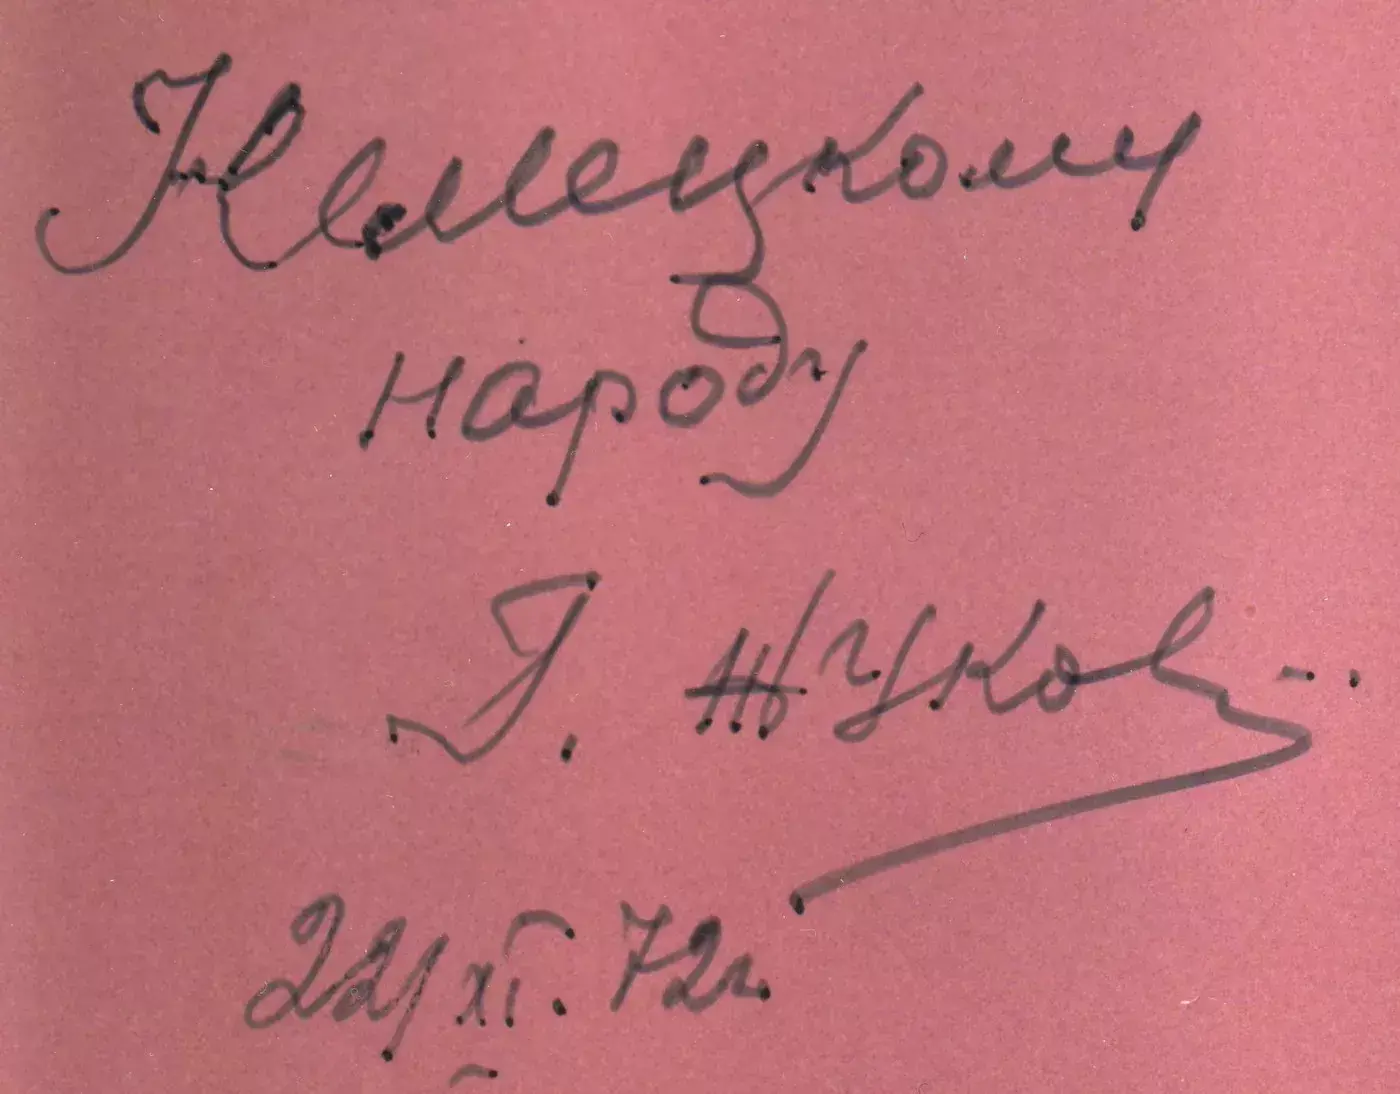 Немецкому
народу
Г. Жуков
22/XI. 72г.